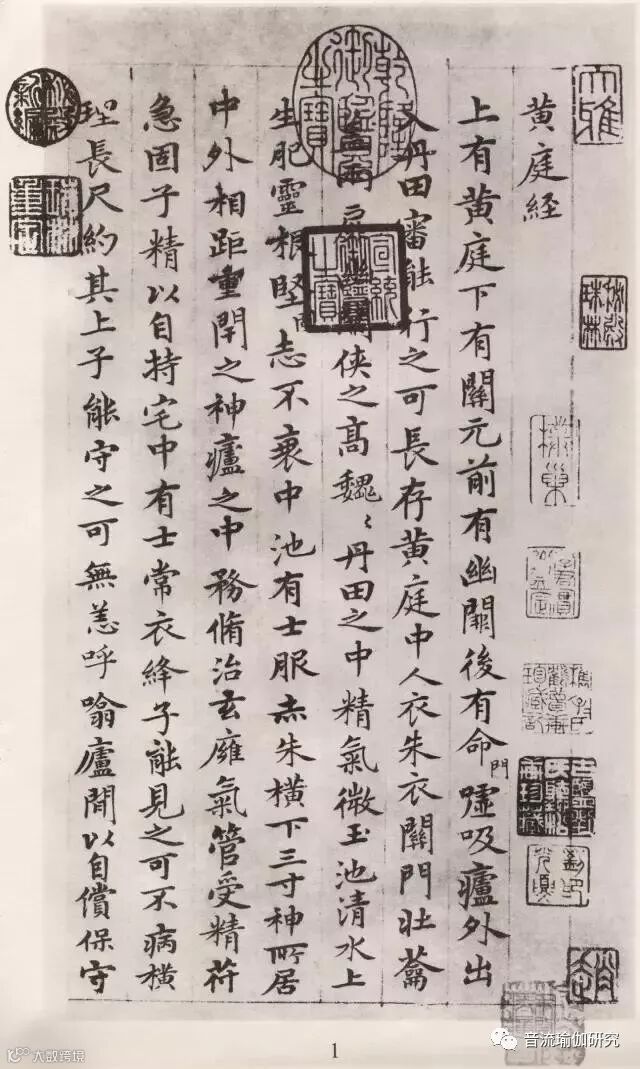 大雅
黄庭經
上有黄庭下有關元前有幽闕後有命門嘘吸廬外出
入丹田審能行之可長存黄庭中人衣朱衣關門壯蘥
兩扉俠之高魏〻丹田之中精氣微玉池清水上
生肥靈根堅志不衰中池有士服赤朱横下三寸神所居
中外相距重閇之神廬之中務脩治玄廱氣管受精苻
急固子精以自持宅中有士常衣絳子能見之可不病横
理長尺約其上子能守之可無恙呼噏廬閒以自償保守
宣統御覽之寶
1
音流瑜伽研究
大数跨境